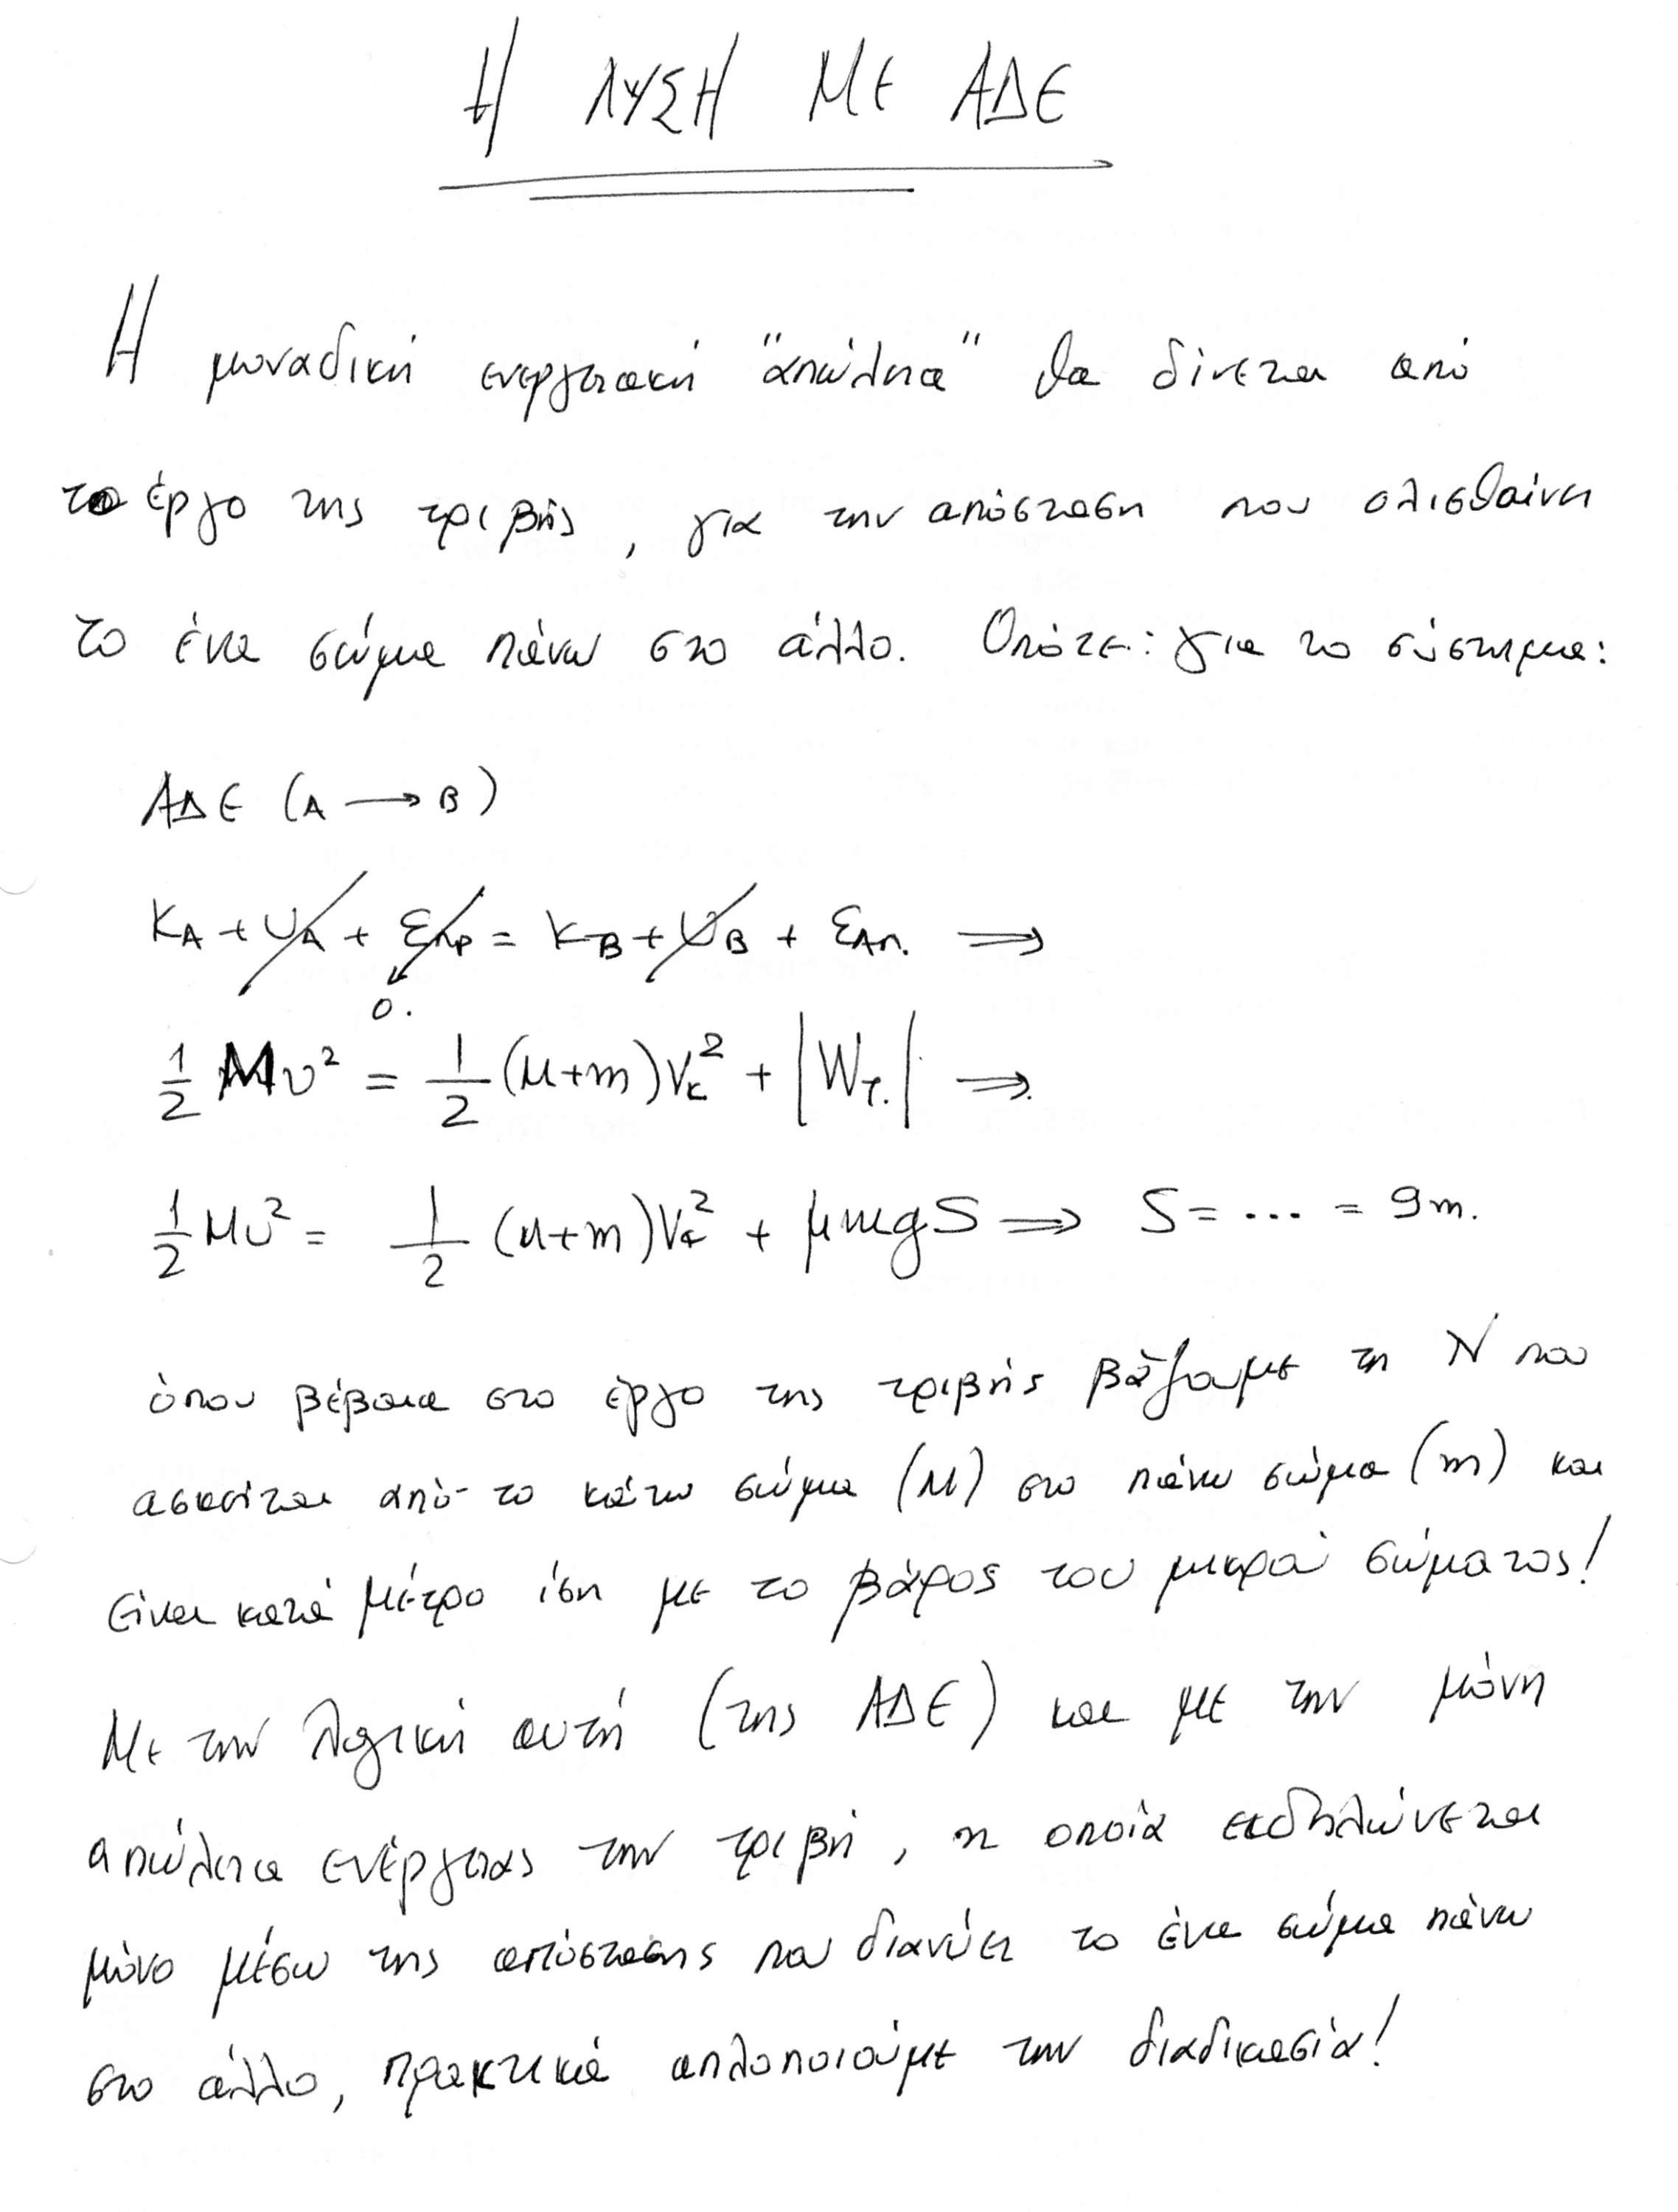 Η ΛΥΣΗ ΜΕ ΑΔΕ
Η μοναδική ενεργειακή "απώλεια" θα δίνεται από
το έργο της τριβής, για την απόσταση που ολισθαίνει
το ένα σώμα πάνω στο άλλο. Οπότε: για το σύστημα:
ΑΔΕ (A → B)
K_A + U_A + E_πρ = K_B + U_B + E_απ. ⇒
0.
1/2 Mυ² = 1/2 (M+m)V_κ² + |W_T.| ⇒
1/2 Mυ² = 1/2 (M+m)V_κ² + μmgS ⇒ S = ... = 9m.
όπου βέβαια στο έργο της τριβής βάζουμε τη N που
ασκείται από το κάτω σώμα (M) στο πάνω σώμα (m) και
είναι κατά μέτρο ίση με το βάρος του μικρού σώματος!
Με την λογική αυτή (της ΑΔΕ) και με την μόνη
απώλεια ενέργειας την τριβή, η οποία εκδηλώνεται
μόνο μέσω της απόστασης που διανύει το ένα σώμα πάνω
στο άλλο, πρακτικά απλοποιούμε την διαδικασία!